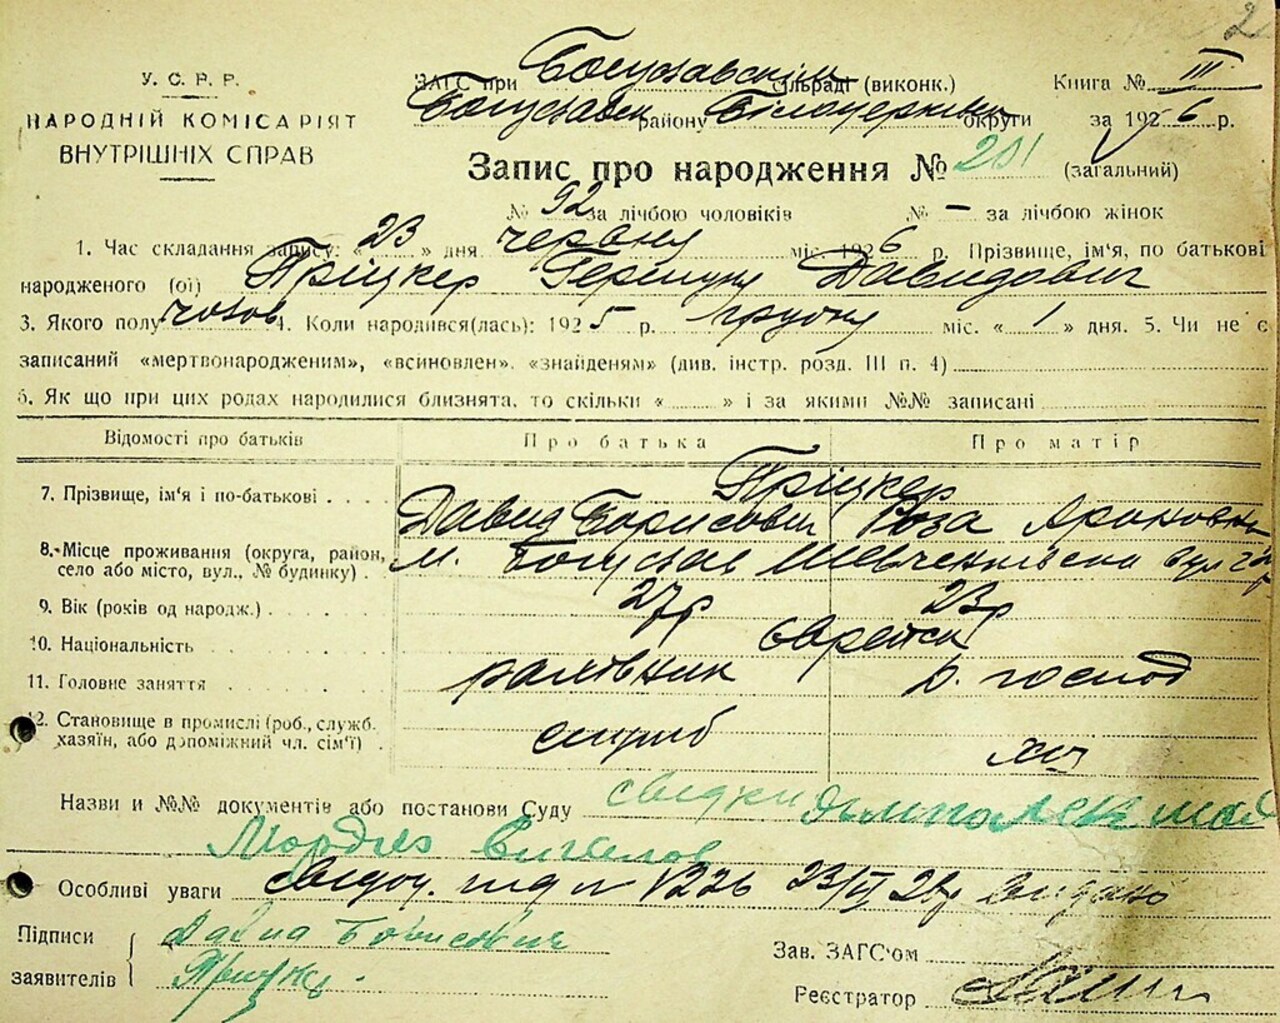 2
У. С. Р. Р.
НАРОДНІЙ КОМІСАРІЯТ
ВНУТРІШНІХ СПРАВ
ЗАГС при Богуславськім сільраді (виконк.)
Книга № III
Богуславськ району Білоцерківськ округи
за 1926 р.
Запис про народження № 201 (загальний)
№ 92 за лічбою чоловіків № – за лічбою жінок
1. Час складання запису: « 23 » дня червня міс. 1926 р. Прізвище, ім'я, по батькові
народженого (ої) Пріцкер Герешун Давидович
3. Якого полу чолов 4. Коли народився(лась): 1925 р. грудня міс. « 1 » дня. 5. Чи не є
записаний «мертвонародженим», «всиновлен», «знайденям» (див. інстр. розд. III п. 4)
6. Як що при цих родах народилися близнята, то скільки « » і за якими №№ записані
Відомості про батьків Про батька Про матір
7. Прізвище, ім'я і по-батькові Пріцкер
Давид Борисович Роза Ароновна
8. Місце проживання (округа, район,
село або місто, вул., № будинку) м. Богуслав Шевченківська вул
9. Вік (років од народж.) 27р 23р
10. Національність єврейськ
11. Головне заняття рахівник д. господ
12. Становище в промислі (роб., служб.
хазяїн, або допоміжний чл. сім'ї) служб
Назви и №№ документів або постанови Суду свідки
Мордко
Особливі уваги свідоц. № 226 23/VI 26р видано
Підписи
заявителів
Давид Борисович
Прицкер
Зав. ЗАГС'ом
Реєстратор